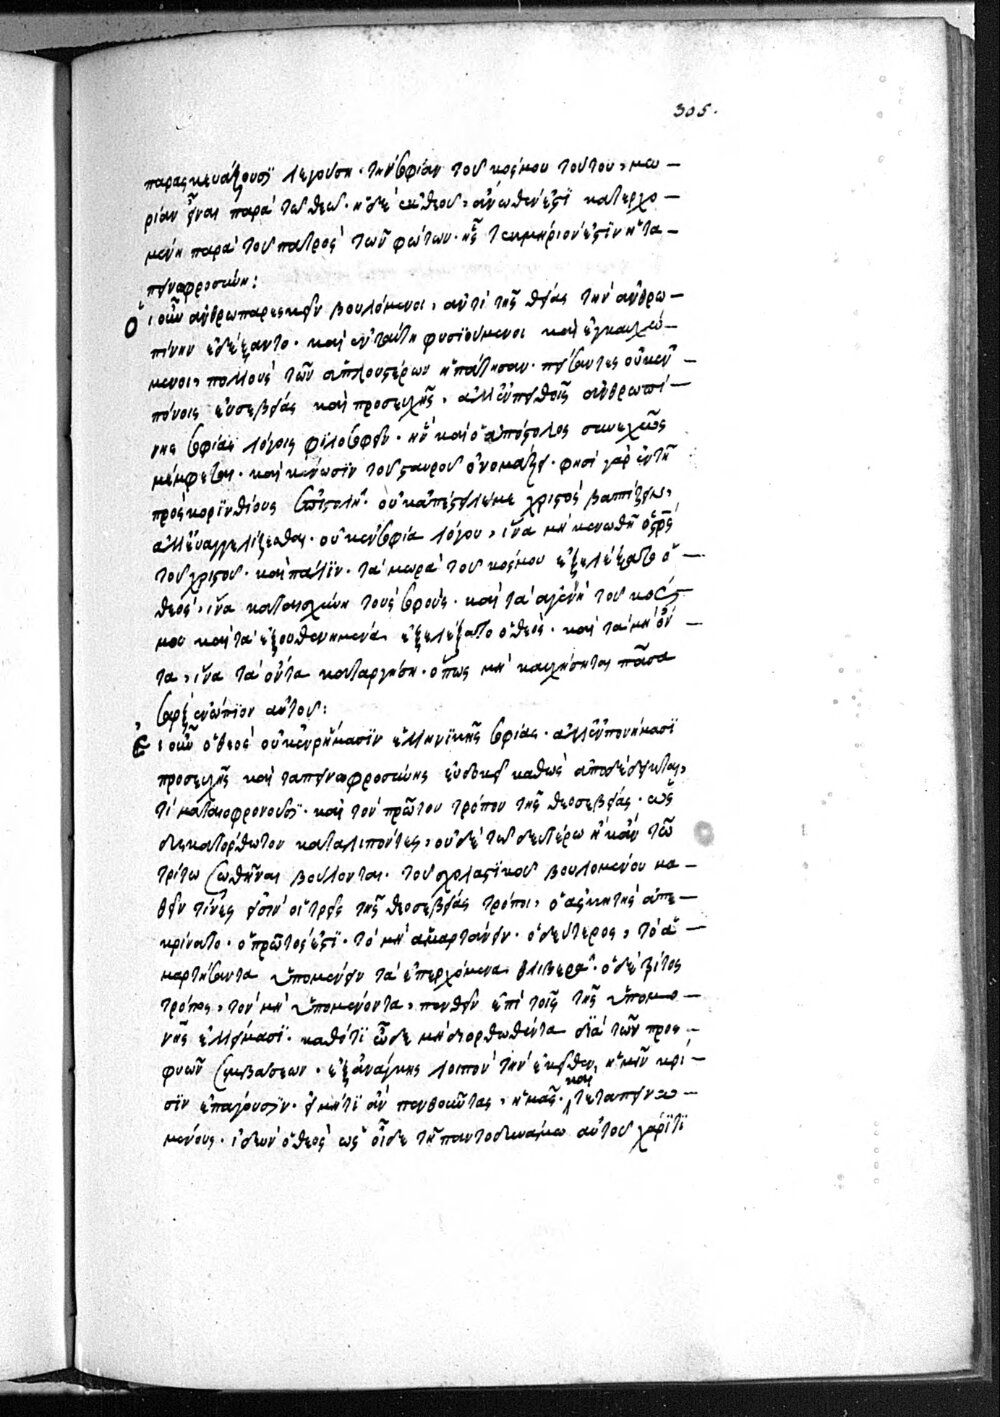 305.
παρασκευάζουσι λέγουσι· τὴν σοφίαν τοῦ κόσμου τούτου, μω–
ρίαν εἶναι παρὰ τῶ θεῶ· ἡ δὲ ἐκ θεοῦ, ἄνωθέν ἐστι κατερχο–
μένη παρὰ τοῦ πατρὸς τῶν φώτων· ἧς τεκμήριόν ἐστιν ἡ τα–
πεινοφροσύνη:
Οἱ οὖν ἀνθρωπαρεσκεῖν βουλόμενοι, ἀντὶ τῆς θείας τὴν ἀνθρω–
πίνην ἐδέξαντο· καὶ ἐν ταύτη φυσιούμενοι καὶ ἐγκαυχώ–
μενοι, πολλοὺς τῶν ἁπλουστέρων ἠπάτησαν· πείσαντες οὐκ ἐν–
πόνοις εὐσεβείας καὶ προσευχῆς, ἀλλ' ἐν πειθοῖς ἀνθρωπί–
νης σοφίας λόγοις φιλοσοφεῖν· ἣν καὶ ὁ ἀπόστολος συνεχῶς
μέμφεται· καὶ κένωσιν τοῦ σταυροῦ ὀνομάζει· φησὶ γὰρ ἐν τῆ
πρὸς κορινθίους ἐπιστολῆ· οὐκ ἀπέστειλέ με χριστὸς βαπτίζειν,
ἀλλ' εὐαγγελίζεσθαι· οὐκ ἐν σοφία λόγου, ἵνα μὴ κενωθῆ ὁ σταυρὸς
τοῦ χριστοῦ· καὶ πάλιν· τὰ μωρὰ τοῦ κόσμου ἐξελέξατο ὁ –
θεός, ἵνα καταισχύνη τοὺς σοφούς· καὶ τὰ ἀγενῆ τοῦ κόσ–
μου καὶ τὰ ἐξουθενημένα ἐξελέξατο ὁ θεός· καὶ τὰ μὴ ὄν–
τα, ἵνα τὰ ὄντα καταργήση· ὅπως μὴ καυχήσηται πᾶσα
σὰρξ ἐνώπιον αὐτοῦ:
Εἰ οὖν ὁ θεὸς οὐκ ἐν ῥήμασιν ἑλληνικῆς σοφίας· ἀλλ' ἐν πονήμασι
προσευχῆς καὶ ταπεινοφροσύνης εὐδοκεῖ καθὼς ἀποδέδεικται,
τί ματαιοφρονοῦσι· καὶ τὸν πρῶτον τρόπον τῆς θεοσεβείας· ὡς
δυσκατόρθωτον καταλιπόντες, οὐδὲ τῶ δευτέρω ἢ κἂν τῶ
τρίτω σωθῆναι βούλονται· τοῦ σχολαστικοῦ βουλομένου μα–
θεῖν τίνες εἰσὶν οἱ τρεῖς τῆς θεοσεβείας τρόποι, ὁ ἀσκητὴς ἀπε–
κρίνατο· ὁ πρῶτός ἐστι· τὸ μὴ ἁμαρτάνειν· ὁ δεύτερος, τὸ ἁ–
μαρτήσαντα ὑπομένειν τὰ ἐπερχόμενα θλιβερά· ὁ δὲ τρίτος
τρόπος, τὸν μὴ ὑπομένοντα, πενθεῖν ἐπὶ τοῖς τῆς ὑπομο–
νῆς ἐλλείμασι· καθότι ὧδε μὴ διορθωθέντα διὰ τῶν προσ–
φυῶν συμβάσεων· ἐξ ἀνάγκης λοιπὸν τὴν ἐκεῖθεν ἡμῖν κρί–
σιν ἐπάγουσιν· εἰ μήτι ἂν πενθοῦντας, ἡμᾶς· καὶ τεταπεινω–
μένους· ἴδειεν ὁ θεὸς ὡς οἶδε τῆ παντοδυνάμω αὐτοῦ χάριτι